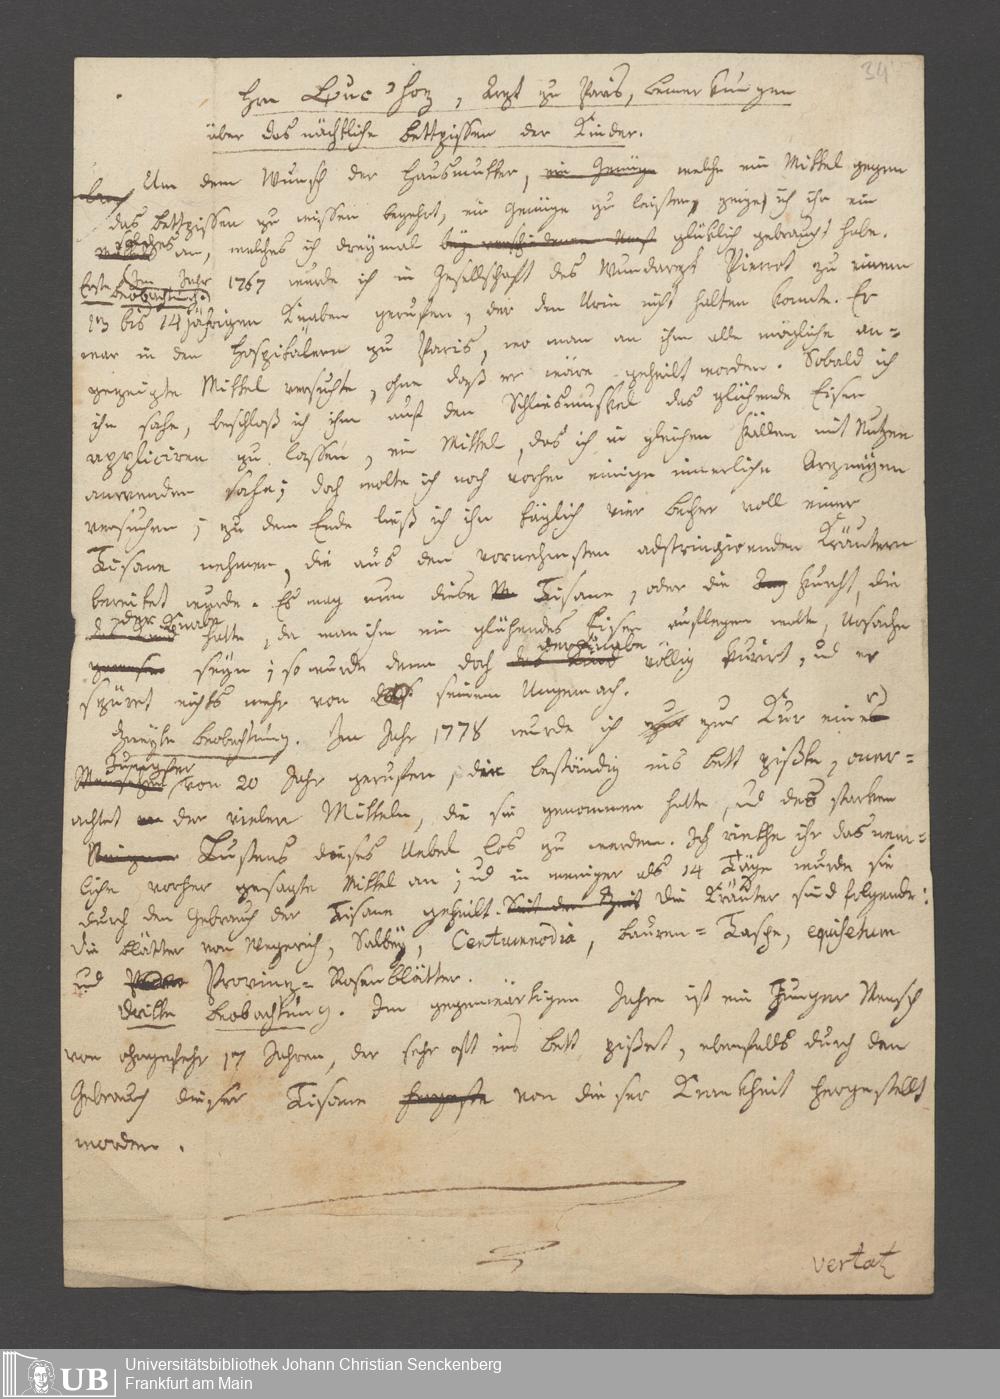 34
Hrn Buc'hoz, Arzt zu Paris, bemerkungen
über das nächtliche bettpissen der Kinder.
Um dem Wunsch der Hausmutter, ein Genüge welche ein Mittel gegen
das bettpissen zu wissen begehrt, ein Genüge zu leisten, zeige ich ihr ein
an, welches ich dreymal glüklich gebraucht habe.
Erste beobachtung. Im Jahr 1767 wurde ich in Gesellschaft des Wundarzt Pierrot zu einem
13 bis 14 jährigen Knaben gerufen, der den Urin nicht halten konnte. Er
war in den Hospitälern zu Paris, wo man an ihm alle mögliche an-
gezeigte Mittel versuchte, ohne daß er wäre geheilt worden. Sobald ich
ihn sahe, beschloß ich ihm auf den Schliesmuskel das glühende Eisen
appliciren zu lassen, ein Mittel, das ich in gleichen Fällen mit Nutzen
anwenden sahe; doch wolte ich noch vorher einige innerliche Arzneyen
versuchen; zu dem Ende ließ ich ihn täglich vier becher voll einer
Tisane nehmen, die aus den vornehmsten adstringirenden Kräutern
bereitet wurde. Es mag nun diese Tisane, oder die Furcht, die
der Knabe hatte, da man ihm ein glühendes Eisen auflegen wolte, Ursache
seyn; so wurde denn doch der Knabe völlig kurirt, ud er
spüret nichts mehr von seinem Ungemach.
Zweyte beobachtung. Im Jahr 1778 wurde ich zur Kur einer
Jungfer von 20 Jahr gerufen, die beständig ins bett pißte, oner-
achtet der vielen Mitteln, die sie genommen hatte, ud des starken
Fastens dieses Uebel los zu werden. Ich riethe ihr das nem-
liche vorher gesagte Mittel an; ud in weniger als 14 Täge wurde sie
durch den Gebrauch der Tisane geheilt. Seit der Zeit Die Kräuter sind folgende:
die blätter von Wegerich, Salbey, Centumnodia, bauren-Tasche, equisetum
ud Provinz-Rosenblätter.
Dritte beobachtung. Im gegenwärtigen Jahre ist ein Junger Mensch
von ohngefehr 17 Jahren, der sehr oft ins bett pißet, ebenfalls durch den
Gebrauch dieser Tisane von dieser Krankheit hergestellt
worden.
vertatz
UB
Universitätsbibliothek Johann Christian Senckenberg
Frankfurt am Main